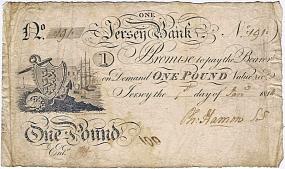 ONE
No. Jersey Bank No. 191
1 Promise to pay the Bearer
on Demand ONE POUND Value recd.
Jersey the 1st day of Jany. 18
One Pound
Ent.
100